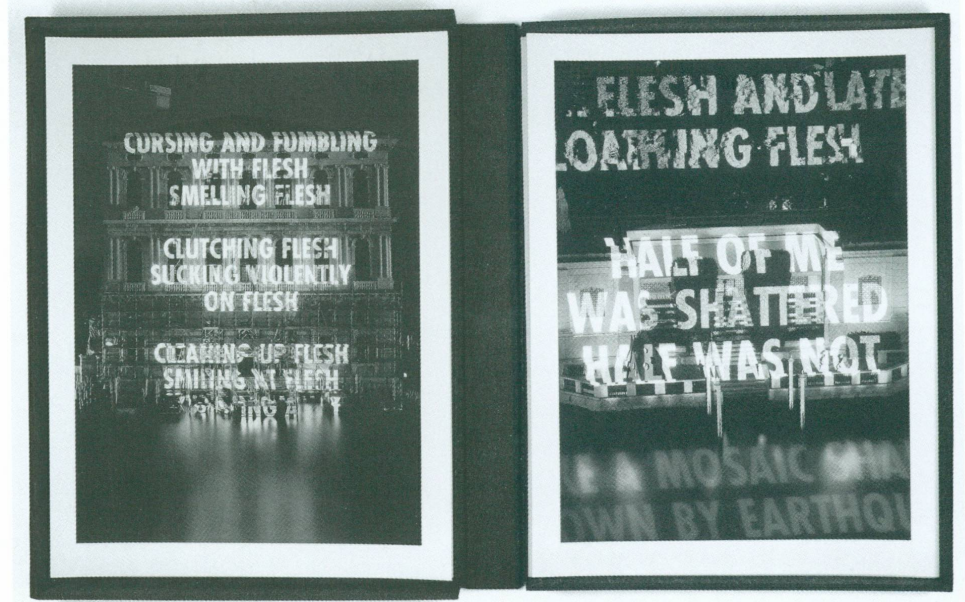 CURSING AND FUMBLING
WITH FLESH
SMELLING FLESH
CLUTCHING FLESH
SUCKING VIOLENTLY
ON FLESH
CLEANING UP FLESH
SMILING AT FLESH
FLESH AND LATE
LOATHING FLESH
HALF OF ME
WAS SHATTERED
HALF WAS NOT
A MOSAIC
OWN BY EARTHQU